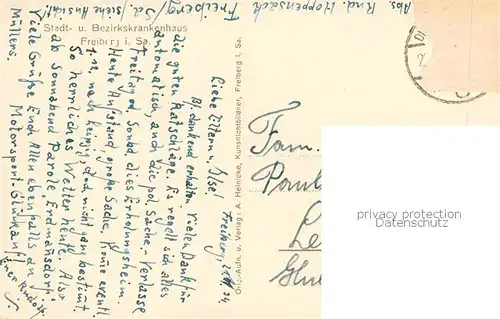 Abs. Rud. Hoppensack
Freiberg/Sa./siehe Ansicht!
Stadt- u. Bezirkskrankenhaus
Freiberg i. Sa.
Freiberg,
Liebe Eltern u. Ilse!
Bf. dankend erhalten. Vielen Dank für
die guten Ratschläge. Es regelt sich alles
automatisch, auch die pol. Sache. Verlasse
Freitag od. Sonnab. dies Erholungsheim.
Heute Aufstand, große Sache, komme eventl.
nach
So herrliches Wetter heute. Also
ab Sonnabend Parole: Erdmannsdorf!
Viele Grüße Euch Allen ebenfalls an
Müllers. Motorsport-Glücken!
Euer Rudolf.
Orig.-Aufn. u. Verlag: A. Heinicke, Kunstlichtbildner, Freiberg i. Sa.
Fam.
Paul
privacy protection
Datenschutz